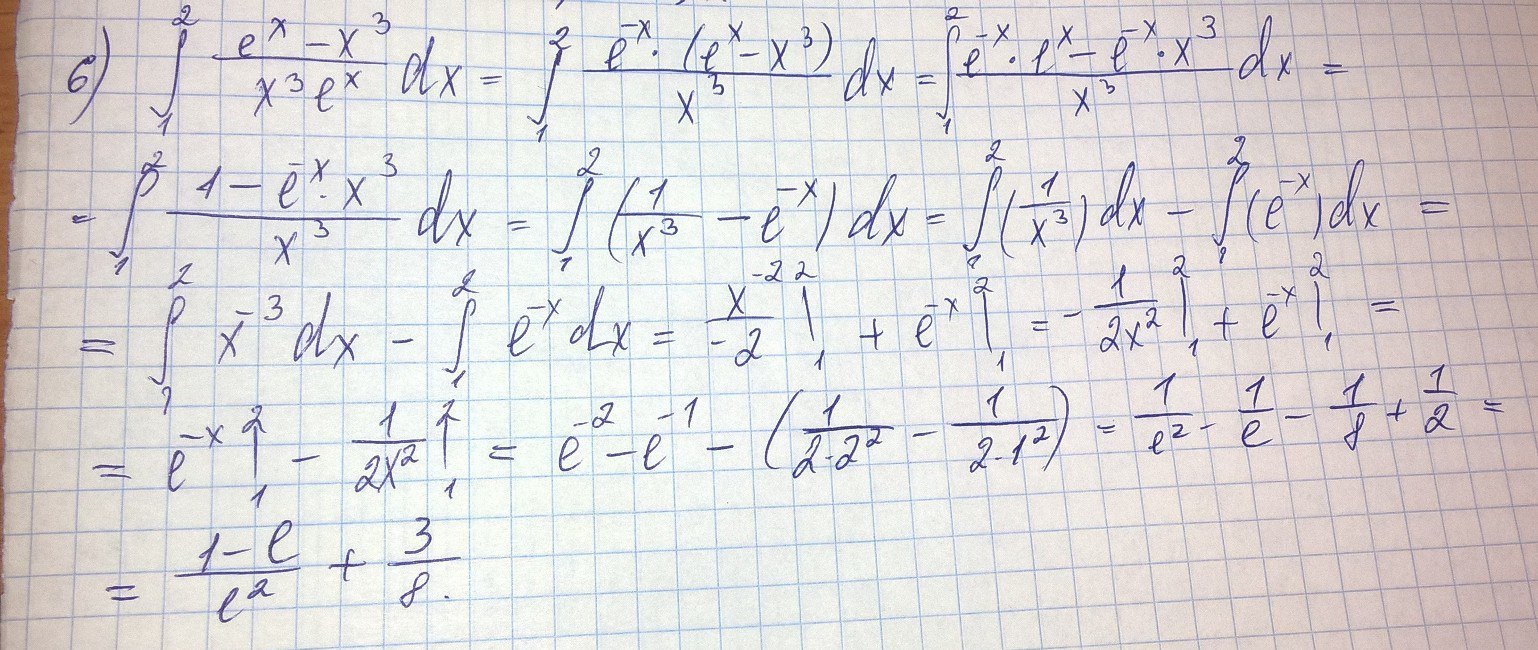 б) ∫₁² (eˣ - x³)/(x³eˣ) dx = ∫₁² (e⁻ˣ · (eˣ - x³))/x³ dx = ∫₁² (e⁻ˣ · eˣ - e⁻ˣ · x³)/x³ dx =
= ∫₁² (1 - e⁻ˣ · x³)/x³ dx = ∫₁² (1/x³ - e⁻ˣ) dx = ∫₁² (1/x³) dx - ∫₁² (e⁻ˣ) dx =
= ∫₁² x⁻³ dx - ∫₁² e⁻ˣ dx = x⁻²/-2 |₁² + e⁻ˣ |₁² = - 1/2x² |₁² + e⁻ˣ |₁² =
= e⁻ˣ |₁² - 1/2x² |₁² = e⁻² - e⁻¹ - (1/(2·2²) - 1/(2·1²)) = 1/e² - 1/e - 1/8 + 1/2 =
= (1 - e)/e² + 3/8.